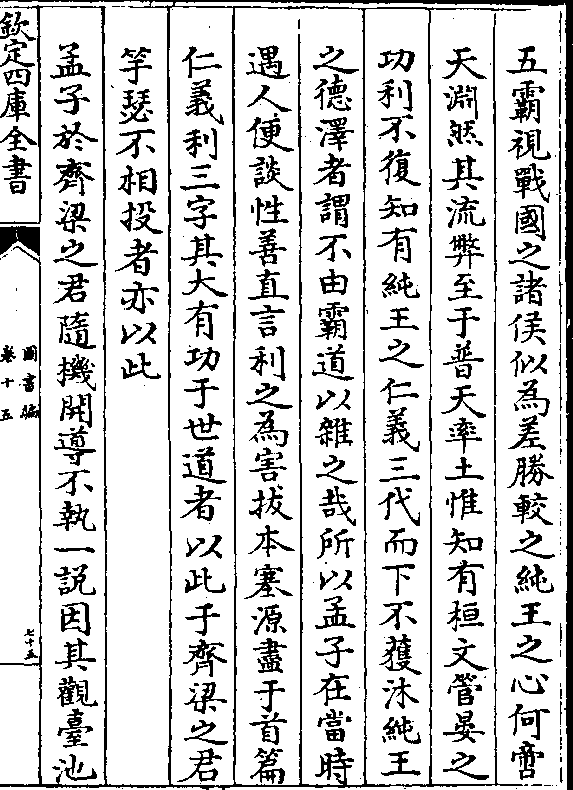 五霸視戰國之諸侯似為差勝較之純王之心何啻
天淵然其流弊至于普天率土惟知有桓文管晏之
功利不復知有純王之仁義三代而下不獲沐純王
之德澤者謂不由霸道以雜之哉所以孟子在當時
遇人便談性善直言利之為害拔本塞源盡于首篇
仁義利三字其大有功于世道者以此于齊梁之君
竽瑟不相投者亦以此
孟子於齊梁之君隨機開導不執一說因其觀臺池
欽定四庫全書
圖書編
卷十五
七十五